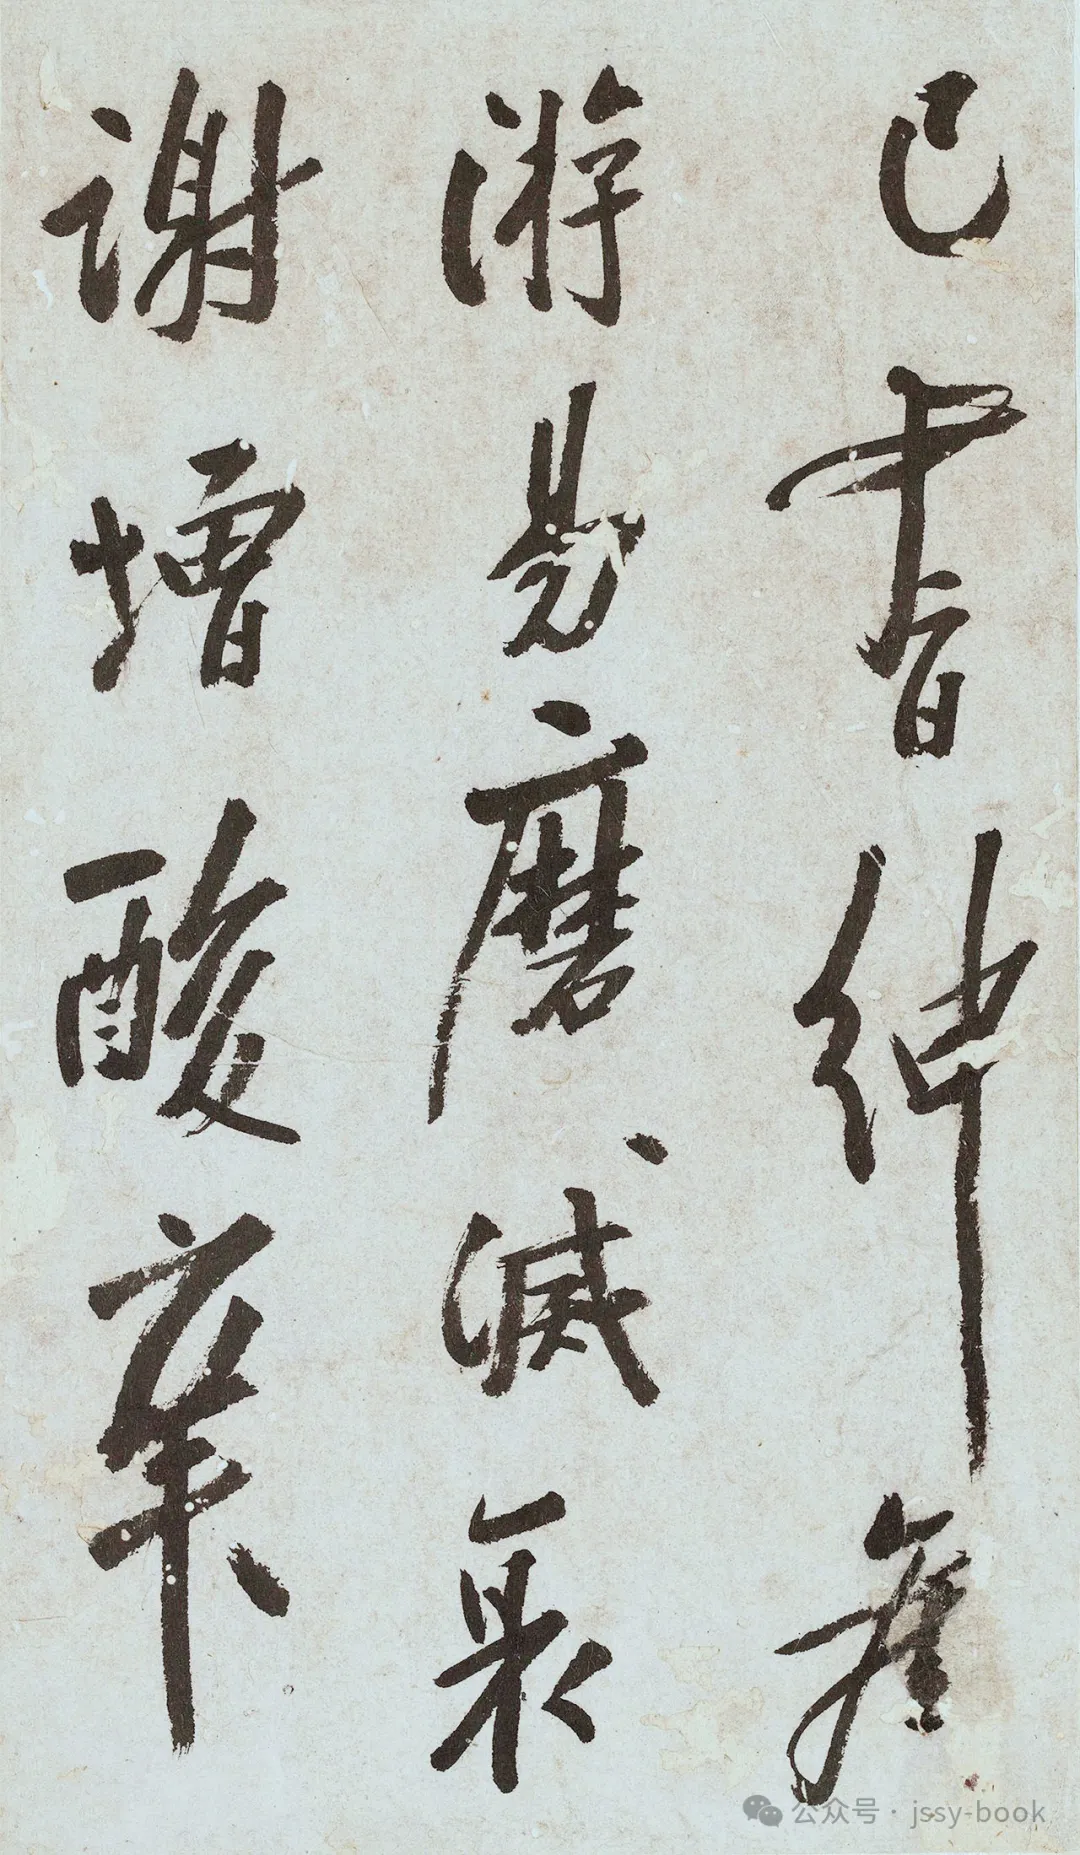 已書紳舊
游易磨滅衰
謝增酸辛
公众号 · jssy-book